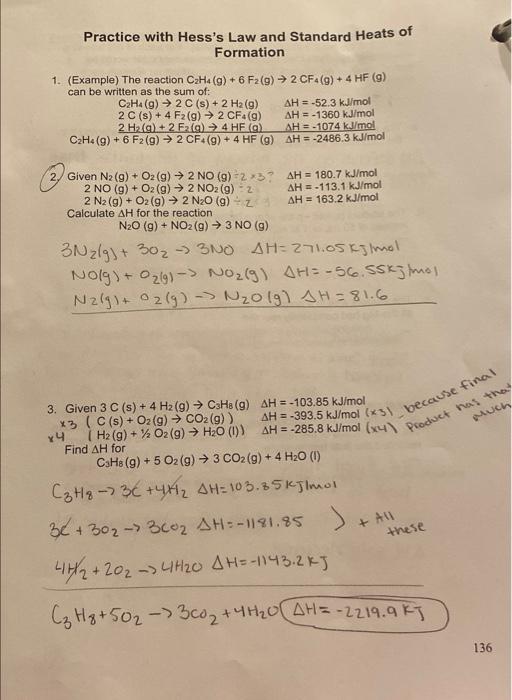 Practice with Hess's Law and Standard Heats of
Formation
1. (Example) The reaction C₂H₄ (g) + 6 F₂ (g) → 2 CF₄ (g) + 4 HF (g)
can be written as the sum of:
C₂H₄ (g) → 2 C (s) + 2 H₂ (g) ΔH = -52.3 kJ/mol
2 C (s) + 4 F₂ (g) → 2 CF₄ (g) ΔH = -1360 kJ/mol
2 H₂ (g) + 2 F₂ (g) → 4 HF (g) ΔH = -1074 kJ/mol
C₂H₄ (g) + 6 F₂ (g) → 2 CF₄ (g) + 4 HF (g) ΔH = -2486.3 kJ/mol
2. Given N₂ (g) + O₂ (g) → 2 NO (g) ÷2 ×3? ΔH = 180.7 kJ/mol
2 NO (g) + O₂ (g) → 2 NO₂ (g) ÷2 ΔH = -113.1 kJ/mol
2 N₂ (g) + O₂ (g) → 2 N₂O (g) ÷2 ΔH = 163.2 kJ/mol
Calculate ΔH for the reaction
N₂O (g) + NO₂ (g) → 3 NO (g)
3N₂(g) + 3O₂ → 3NO ΔH = 271.05 KJ/mol
NO(g) + O₂(g) → NO₂(g) ΔH = -56.55KJ/mol
N₂(g) + O₂(g) → N₂O(g) ΔH = 81.6
3. Given 3 C (s) + 4 H₂ (g) → C₃H₈ (g) ΔH = -103.85 kJ/mol
×3 ( C (s) + O₂ (g) → CO₂ (g) ) ΔH = -393.5 kJ/mol (×3) because final
×4 ( H₂ (g) + ½ O₂ (g) → H₂O (l) ) ΔH = -285.8 kJ/mol (×4) product has that
much
Find ΔH for
C₃H₈ (g) + 5 O₂ (g) → 3 CO₂ (g) + 4 H₂O (l)
C₃H₈ → 3C + 4H₂ ΔH = 103.85KJ/mol
3C + 3O₂ → 3CO₂ ΔH = -1181.85 ) + All
these
4H₂ + 2O₂ → 4H₂O ΔH = -1143.2KJ
C₃H₈ + 5O₂ → 3CO₂ + 4H₂O ΔH = -2219.9 KJ
136